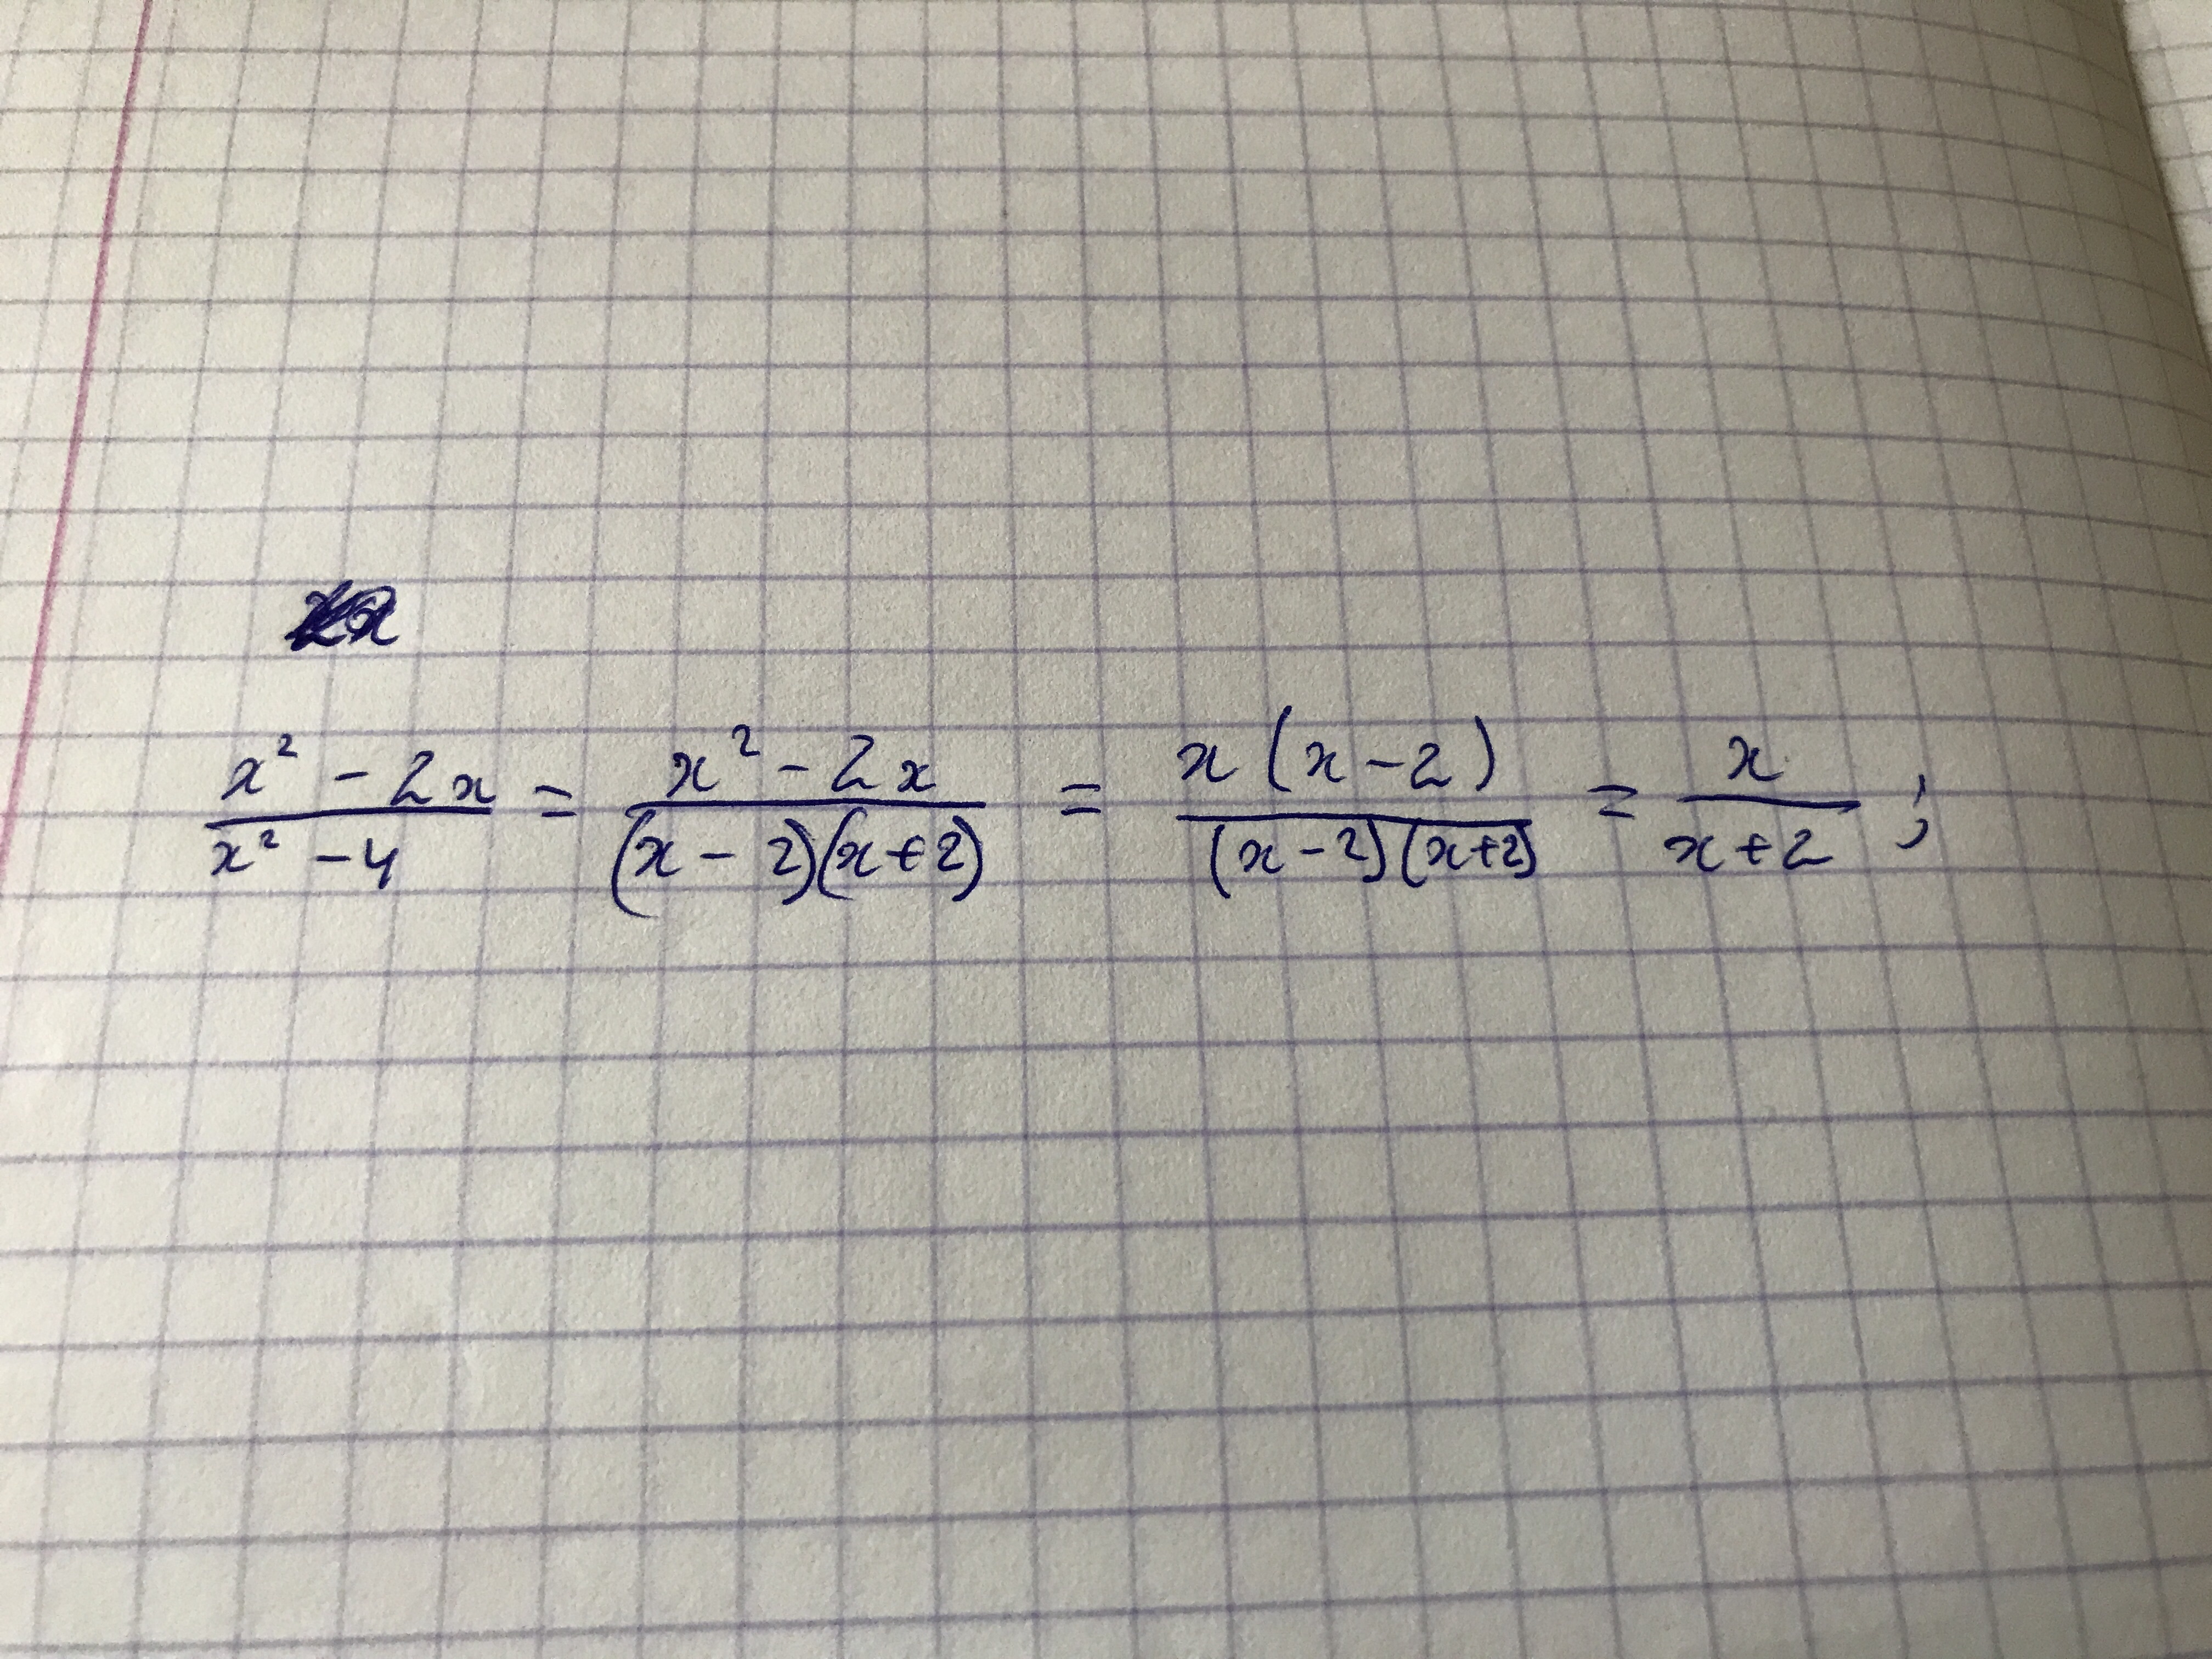 x² - 2x / x² - 4 = x² - 2x / (x - 2)(x + 2) = x(x - 2) / (x - 2)(x + 2) = x / x + 2 ;